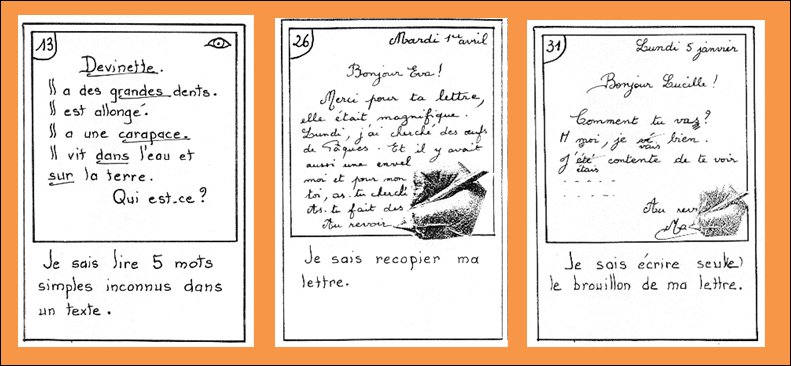 13
Devinette.
Il a des grandes dents.
Il est allongé.
Il a une carapace.
Il vit dans l'eau et
sur la terre.
Qui est-ce ?
Je sais lire 5 mots
simples inconnus dans
un texte.
26
Mardi 1er avril
Bonjour Eva !
Merci pour ta lettre,
elle était magnifique.
Lundi, j'ai cherché des œufs
de Pâques. Et il y avait
aussi une envel
moi et pour mon
toi, as-tu cherché
As-tu fait des
Au revoir
Je sais recopier ma
lettre.
31
Lundi 5 janvier
Bonjour Lucille !
Comment tu vas ?
moi, je vé bien.
vais
J'été contente de te voir
étais
Au revoir
Ma
Je sais écrire seul(e)
le brouillon de ma lettre.